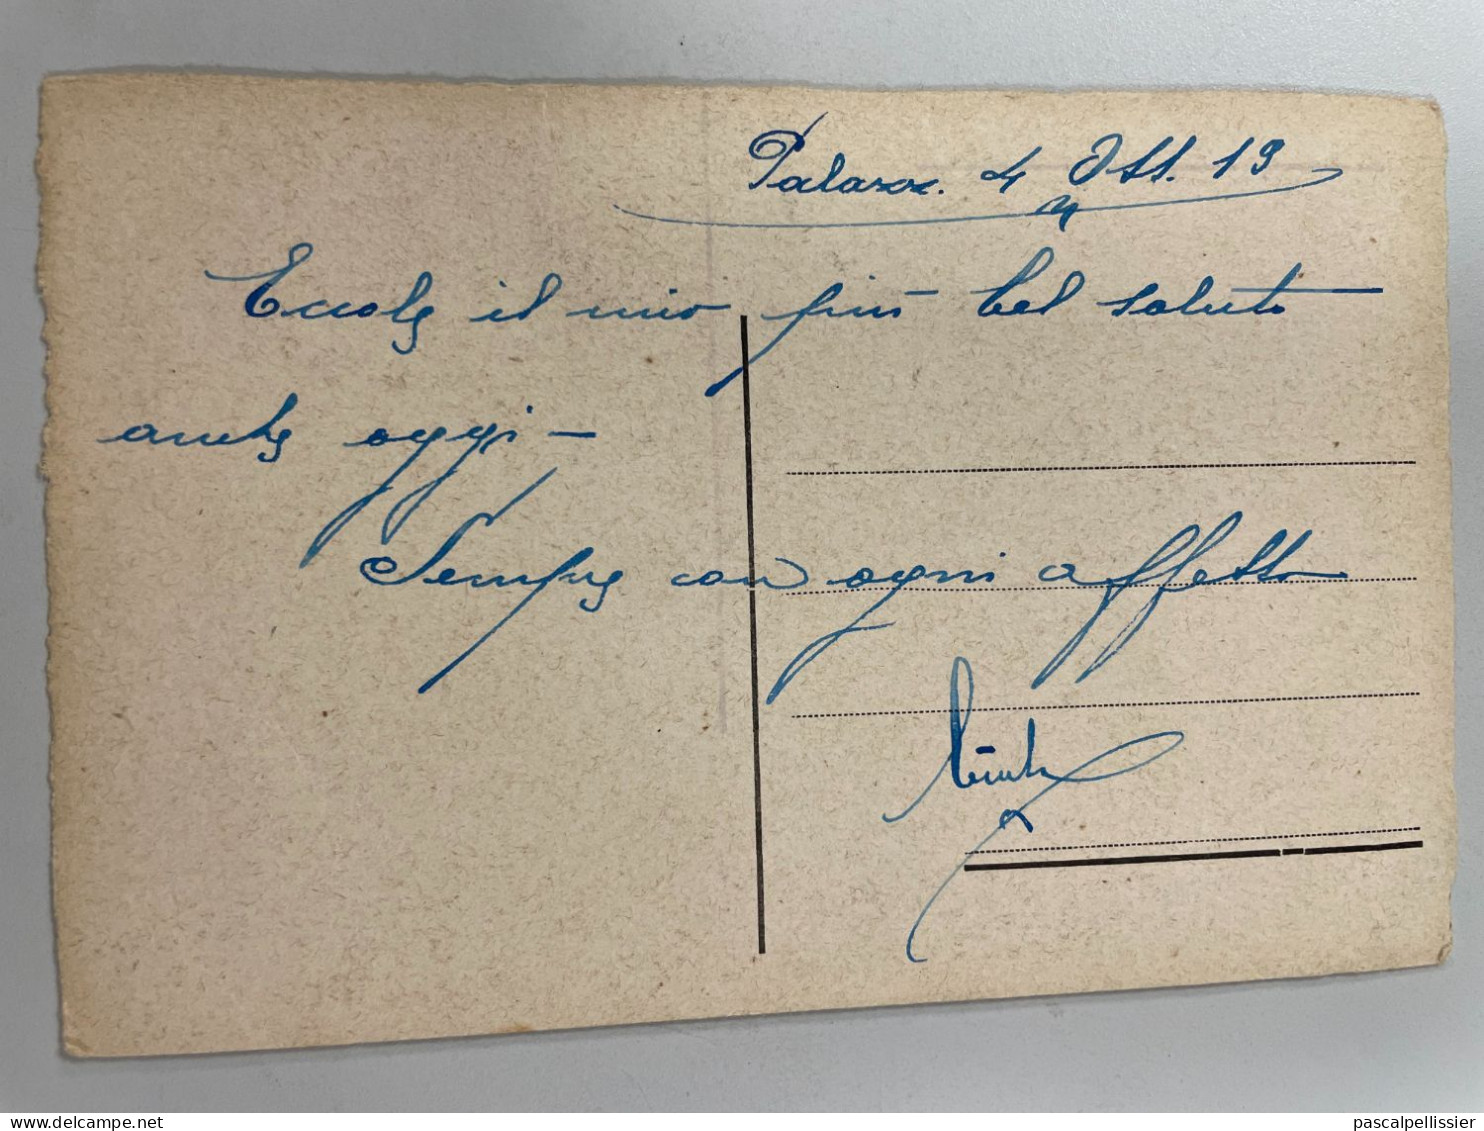 4 Ott. 19
Eccole il mio più bel saluto
anche oggi —
Sempre con ogni affetto
pascalpellissier
www.delcampe.net